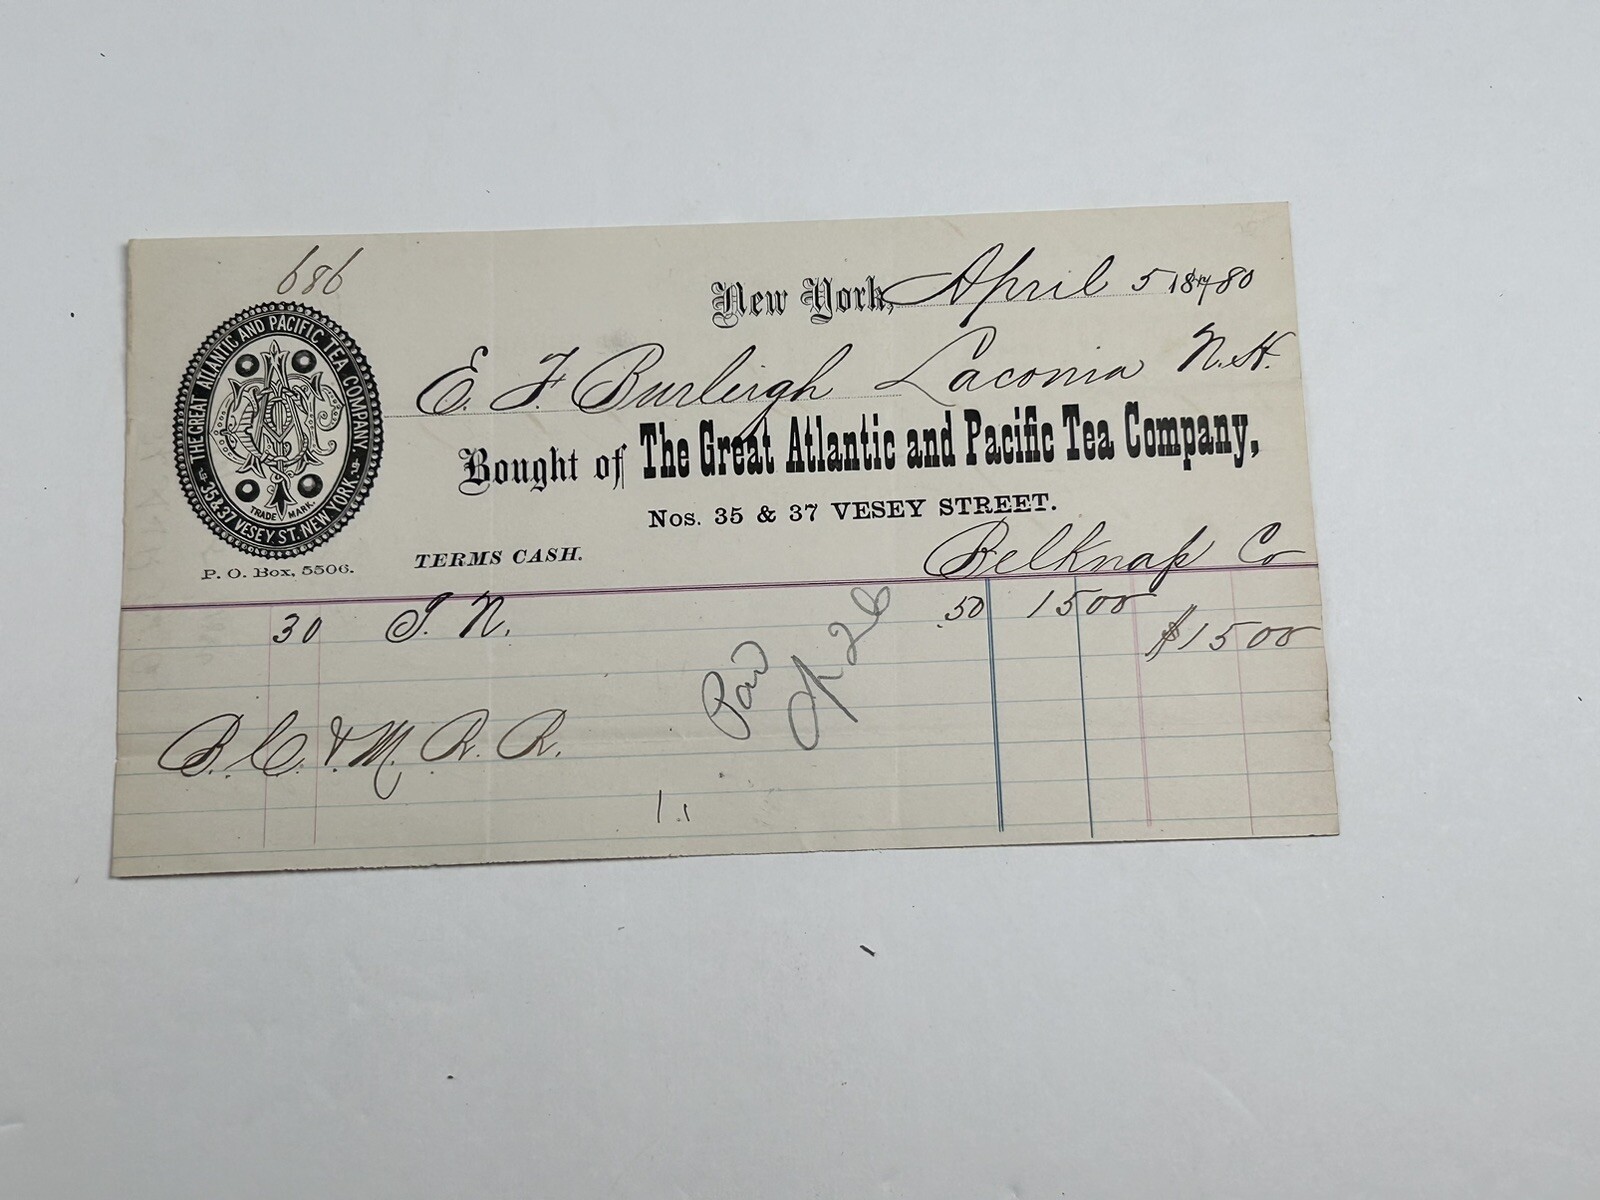 686
New York, April 5 1880
E. F. Burleigh Laconia N.H.
Bought of The Great Atlantic and Pacific Tea Company,
Nos. 35 & 37 VESEY STREET.
THE GREAT ATLANTIC AND PACIFIC TEA COMPANY.
35 & 37 VESEY ST. NEW YORK.
TRADE MARK.
P. O. Box, 5506.
TERMS CASH.
Belknap Co
30 J. N. .50 15 00
$15 00
Paid
Ap 26
B. C. & M. R. R.